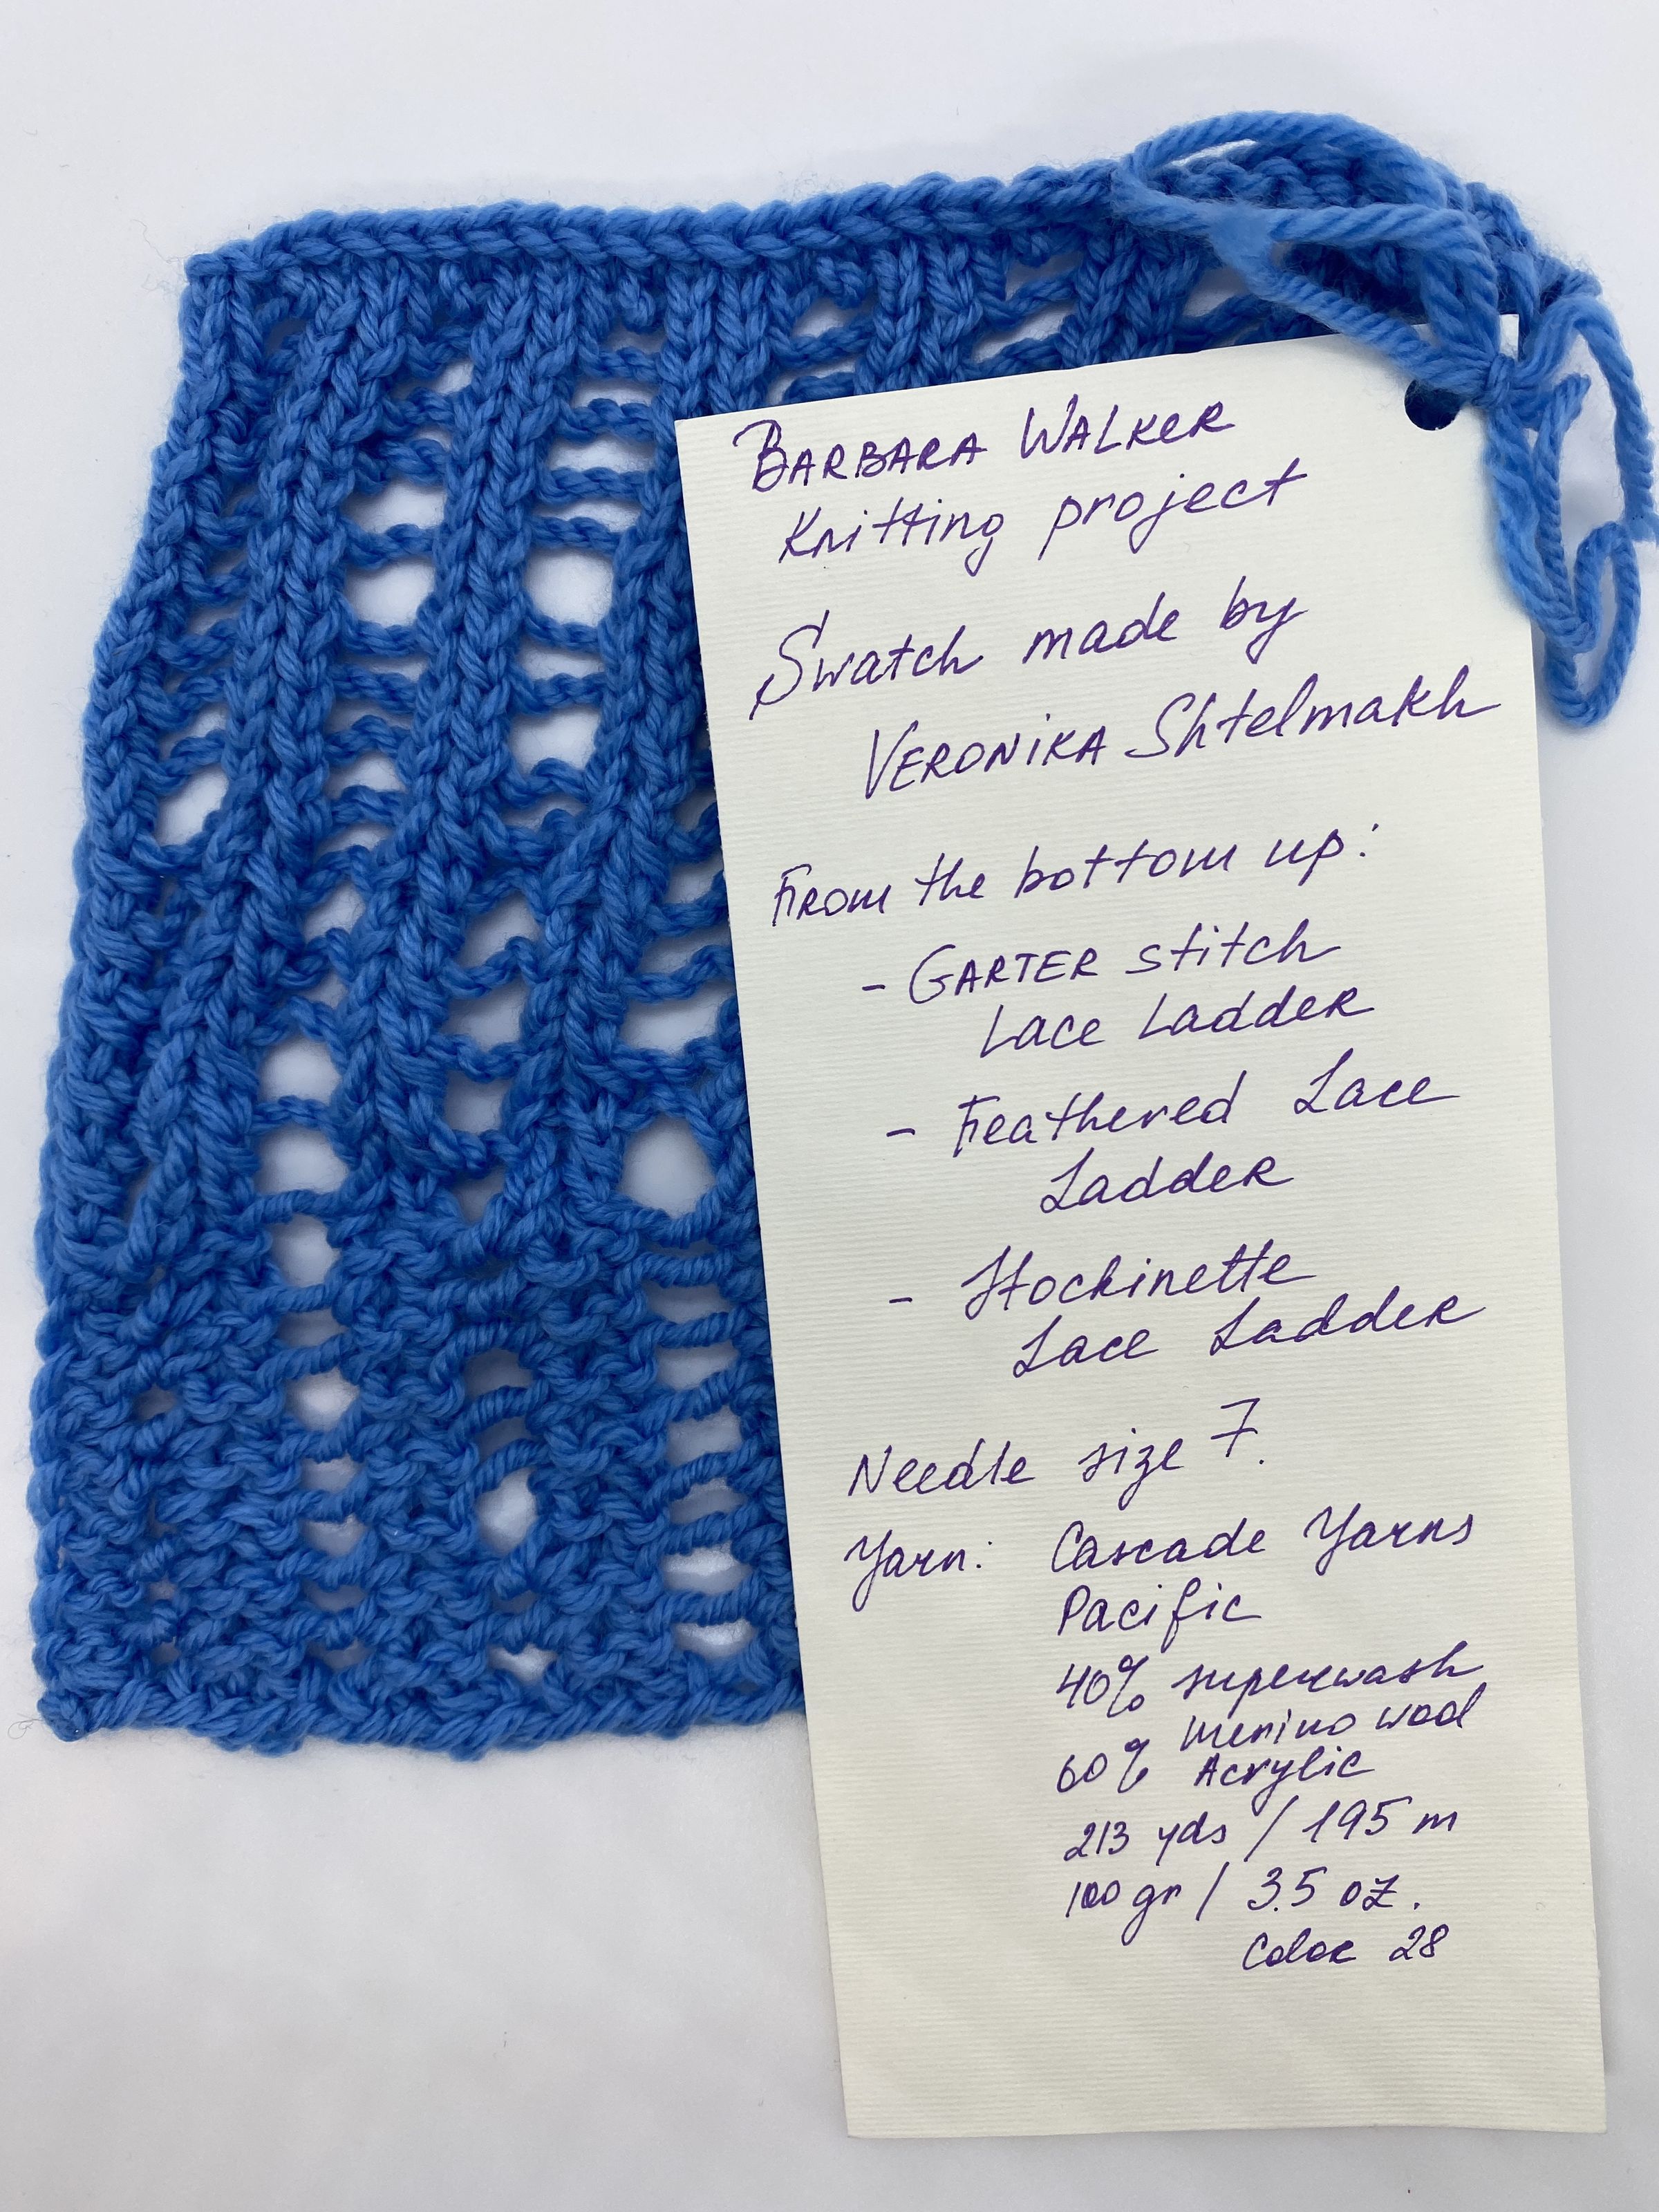 BARBARA WALKER
Knitting project
Swatch made by
VERONIKA Shtelmakh
From the bottom up:
- GARTER stitch
Lace Ladder
- Feathered Lace
Ladder
- Stockinette
Lace Ladder
Needle size 7.
Yarn: Cascade Yarns
Pacific
40% superwash
merino wool
60% Acrylic
213 yds / 195 m
100 gr / 3.5 oz.
Color 28